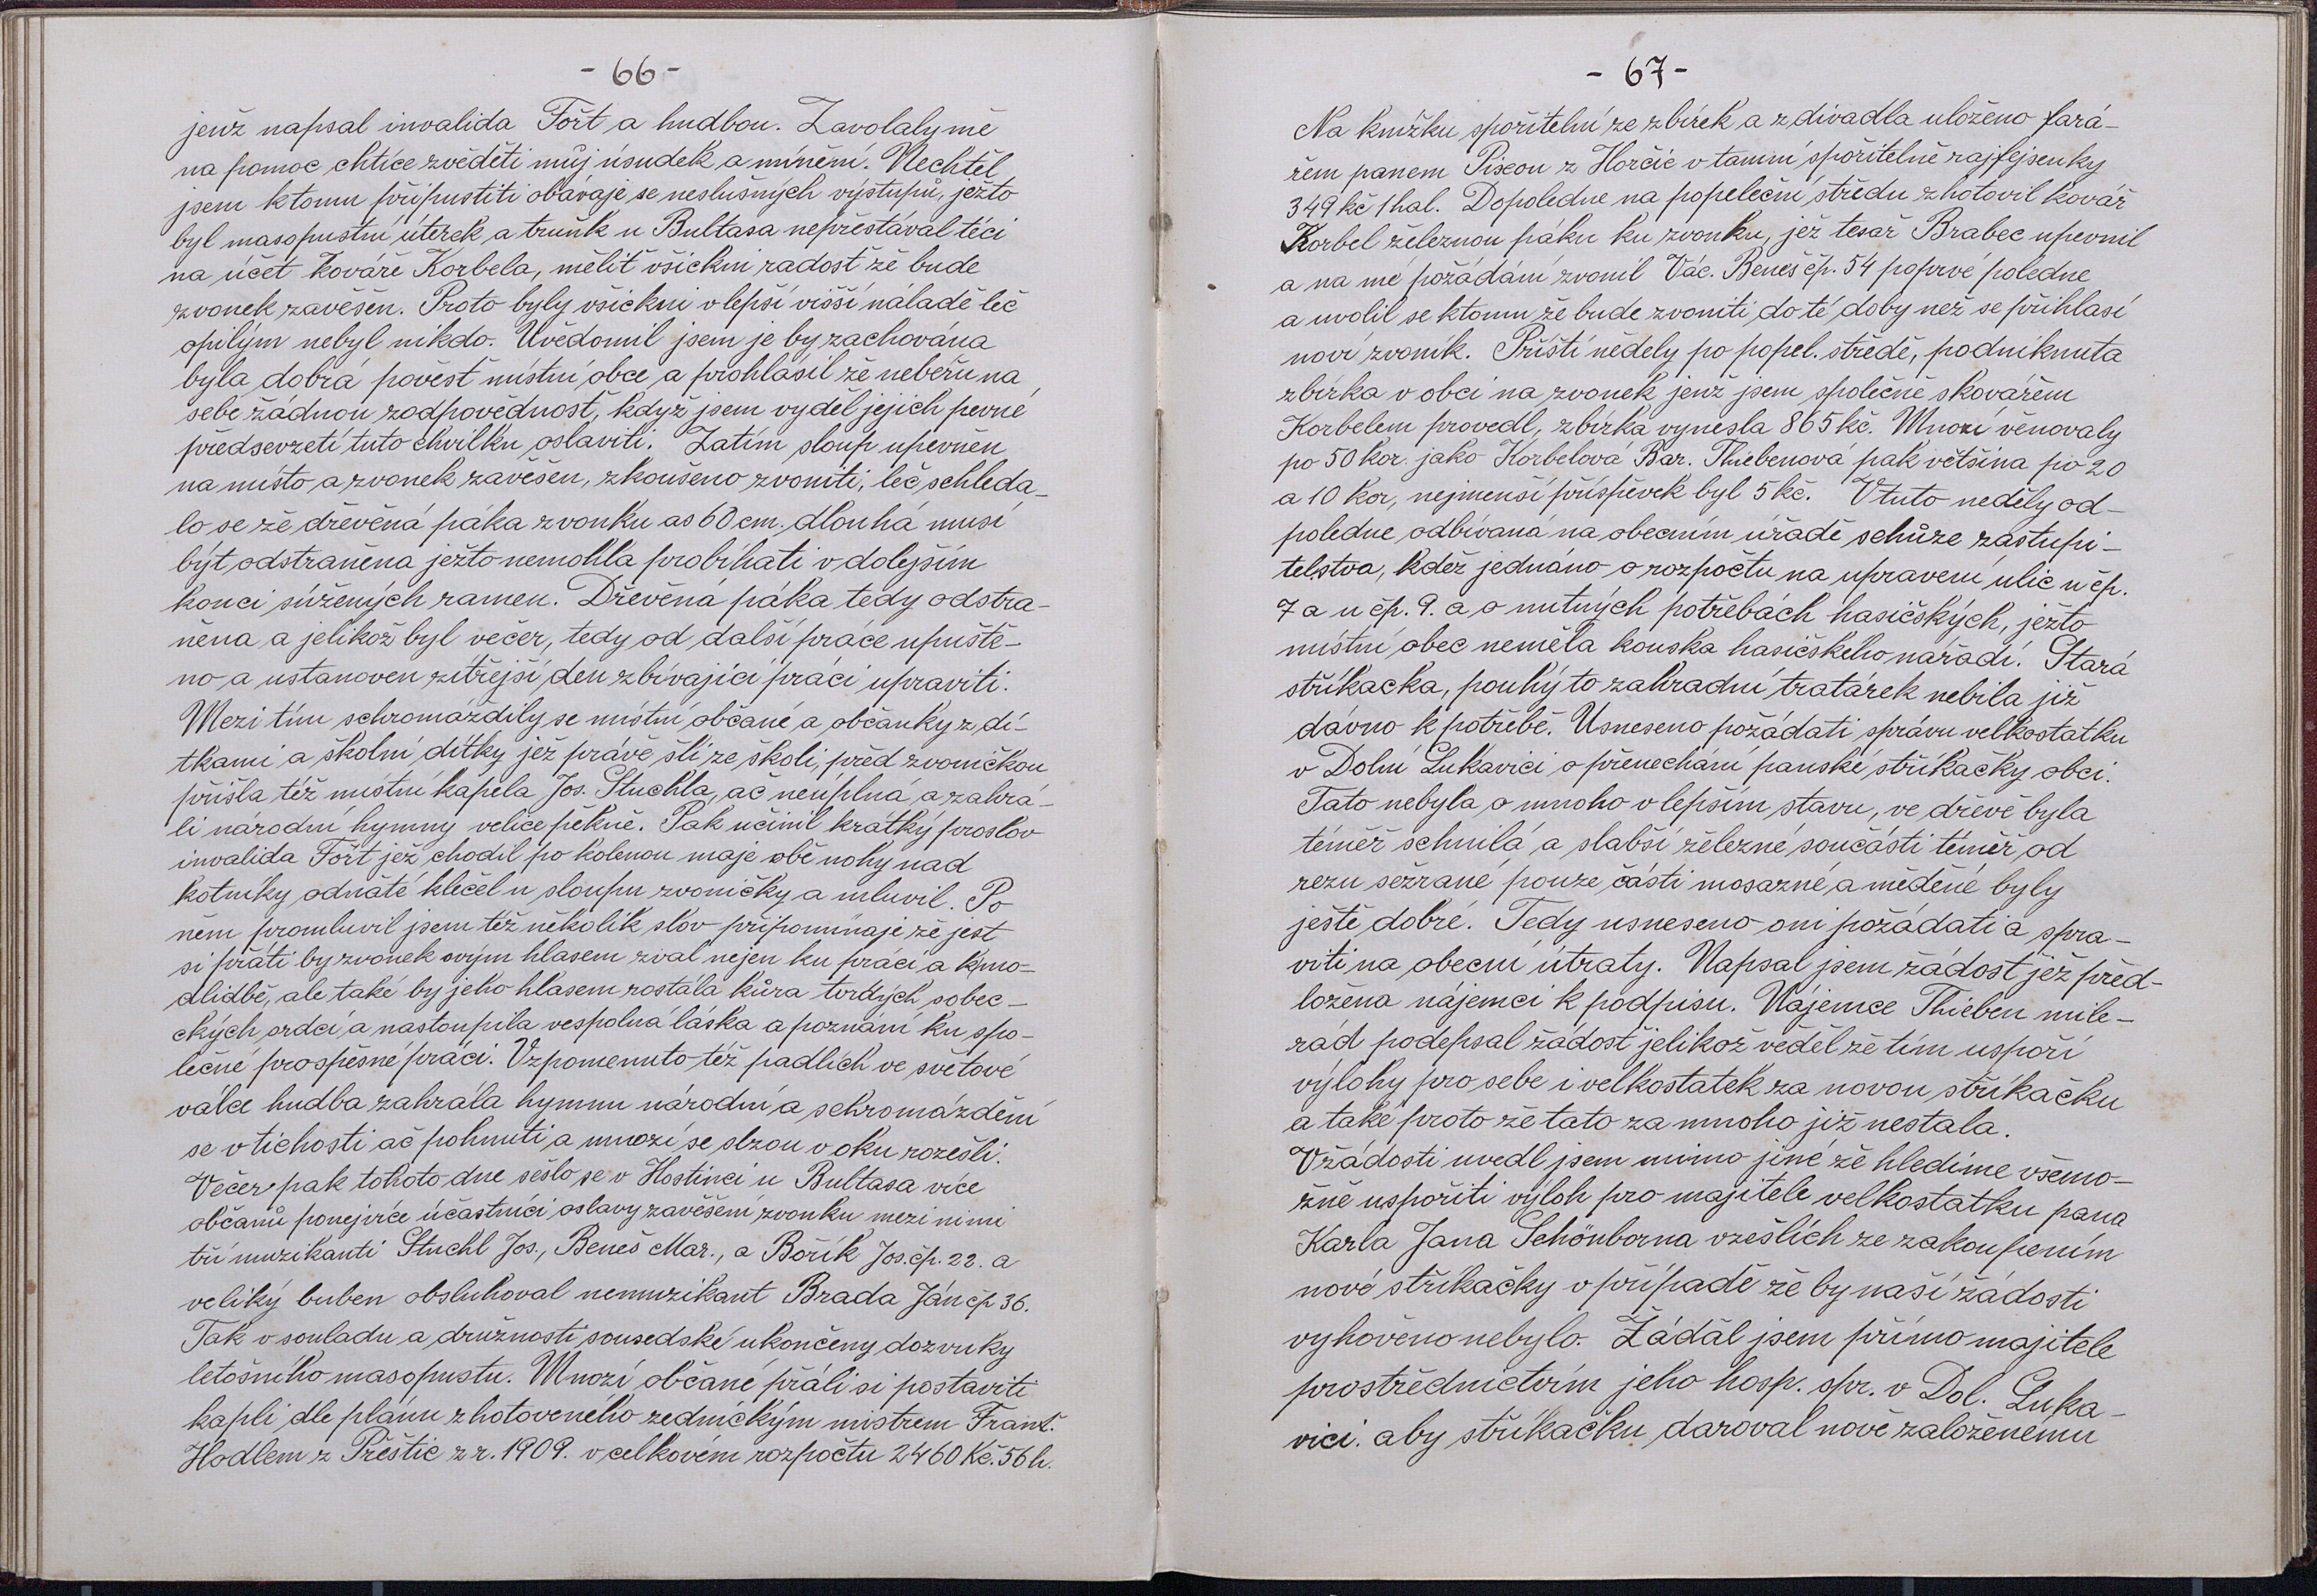 - 66 -
jenž napsal invalida Fořt a hudbou. Zavolaly mě
na pomoc chtíce zvěděti můj úsudek a mínění. Nechtěl
jsem k tomu připustiti obávaje se neslušných výstupů, ježto
byl masopustní úterek a truňk u Bultasa nepřestával téci
na účet kováře Korbela, mělit všickni radost že bude
zvonek zavěšen. Proto byly všickni v lepší višší náladě leč
opilým nebyl nikdo. Uvědomil jsem je by zachována
byla dobrá pověst místní obce a prohlásil že neběřu na
sebe žádnou zodpovědnosť, když jsem vyděl jejich pevné
předsevzetí tuto chvilku oslaviti. Zatím sloup upevněn
na místo a zvonek zavěšen, zkoušeno zvoniti, leč schleda-
lo se že dřevěná páka zvonku as 60 cm. dlouhá musí
být odstraněna ježto nemohla probíhati v dolejším
konci súžených ramen. Dřevěná páka tedy odstra-
něna a jelikož byl večer, tedy od další práce upuště-
no a ustanoven zítřejší den zbívající práci upraviti.
Mezi tím schromáždily se místní občané a občanky z dí-
tkami a školní dítky jež právě šli ze školi, před zvoničkou
přišla též místní kapela Jos. Stuchla, ač neúplná a zahrá-
li národní hymny velice pěkně. Pak učinil krátký proslov
invalida Fořt jež chodil po kolenou maje obě nohy nad
kotníky odňaté klečel u sloupu zvoničky a mluvil. Po
něm promluvil jsem též několik slov připomínaje že jest
si přáti by zvonek svým hlasem zval nejen ku práci a k mo-
dlidbě, ale také by jeho hlasem rostála kůra tvrdých sobec-
ckých srdcí a nastoupila vespolná láska a poznání ku spo-
lečné prospěšné práci. Vzpomenuto též padlích ve světové
válce hudba zahrála hymnu národní a schromáždění
se v tichosti ač pohnuti a mnozí se slzou v oku rozešli.
Večer pak tohoto dne sešlo se v Hostinci u Bultasa více
občanů ponejvíce účastníci oslavy zavěšení zvonku mezi nimi
tři muzikanti Stuchl Jos., Beneš Mar., a Bořík Jos. čp. 22. a
veliký buben obsluhoval nemuzikant Brada Ján čp 36.
Tak v souladu a družnosti sousedské ukončeny dozvuky
letošního masopustu. Mnozí občané přáli si postaviti
kapli dle plánu zhotoveného zedníckým mistrem Frant.
Hodlem z Přeštic z r. 1909. v celkovém rozpočtu 2460 Kč. 56 h.
- 67 -
Na knížku spořitelní ze zbírek a z divadla uloženo fará-
řem panem Pixou z Horčic v tamní spořitelně rajfejsenky
349 kč 1 hal. Dopoledne na popeleční středu zhotovil kovář
Korbel železnou páku ku zvonku, jež tesař Brabec upevnil
a na mé požádání zvonil Vác. Beneš čp. 54 poprvé poledne
a uvolil se k tomu že bude zvoniti do té doby než se přihlasí
noví zvoník. Příští nedely po popel. středě, podniknuta
zbírka v obci na zvonek jenž jsem společně skovářem
Korbelem provedl, zbírka vynesla 865 kč. Mnozi věnovaly
po 50 kor. jako Korbelová Bar. Thiebenová pak většina po 20
a 10 kor, nejmenší příspěvek byl 5 kč. V tuto neděly od-
poledne odbívaná na obecním úřadě schůze zastupi-
telstva, kdež jednáno o rozpočtu na upravení ulic u čp.
7 a u čp. 9. a o nutných potřebách hasičských, ježto
místní obec neměla kouska hasičského nářadí. Stará
stříkacka, pouhý to zahradní tratárek nebila již
dávno k potřebě. Usneseno požádati správu velkostatku
v Dolní Lukavici o přenechání panské stříkačky obci.
Tato nebyla o mnoho v lepším stavu, ve dřevě byla
téměř schnilá a slabší železné součásti téměř od
rezu sežrané pouze části mosazné a měděné byly
ještě dobré. Tedy usneseno oni požádati a spra-
viti na obecní útraty. Napsal jsem žádost jež před-
ložena nájemci k podpisu. Nájemce Thieben mile-
rád podepsal žádost jelikož věděl že tím uspoří
výlohy pro sebe i velkostatek za novou stříkačku
a také proto že tato za mnoho již nestala.
V žádosti uvedl jsem mimo jiné že hledíme všemo-
žně uspořiti výloh pro majitele velkostatku pana
Karla Jana Schönborna vzešlích ze zakoupením
nové stříkačky v případě že by naší žádosti
vyhověno nebylo. Žádal jsem přímo majitele
prostřednictvím jeho hosp. spr. v Dol. Luka-
vici. aby stříkačku daroval nově založenému